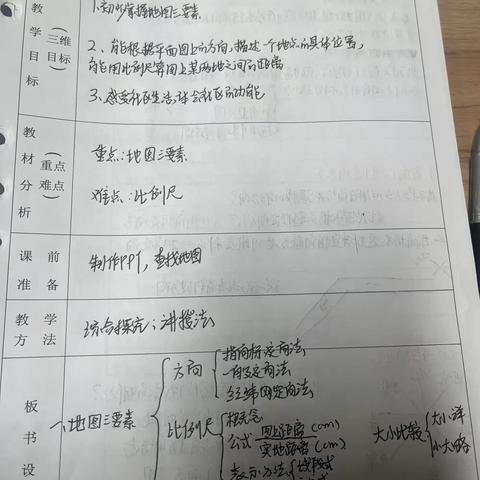 教学目标（三维目标）
1.初步掌握地图三要素
2、能根据平面图上的方向,描述一个地点的具体位置,
能用比例尺算图上某两地之间的距离
3、感受社区生活,体会社区的功能
教材分析（重点难点）
重点:地图三要素
难点:比例尺
课前准备
制作PPT,查找地图
教学方法
综点探究;讲授法
板书设
一、地图三要素
方向
指向标定向法
一般定向法
经纬网定向法
比例尺
概念
公式 图上距离(cm)
实地距离(cm)
表示方法 线段式
大小比较
大小详
小大略